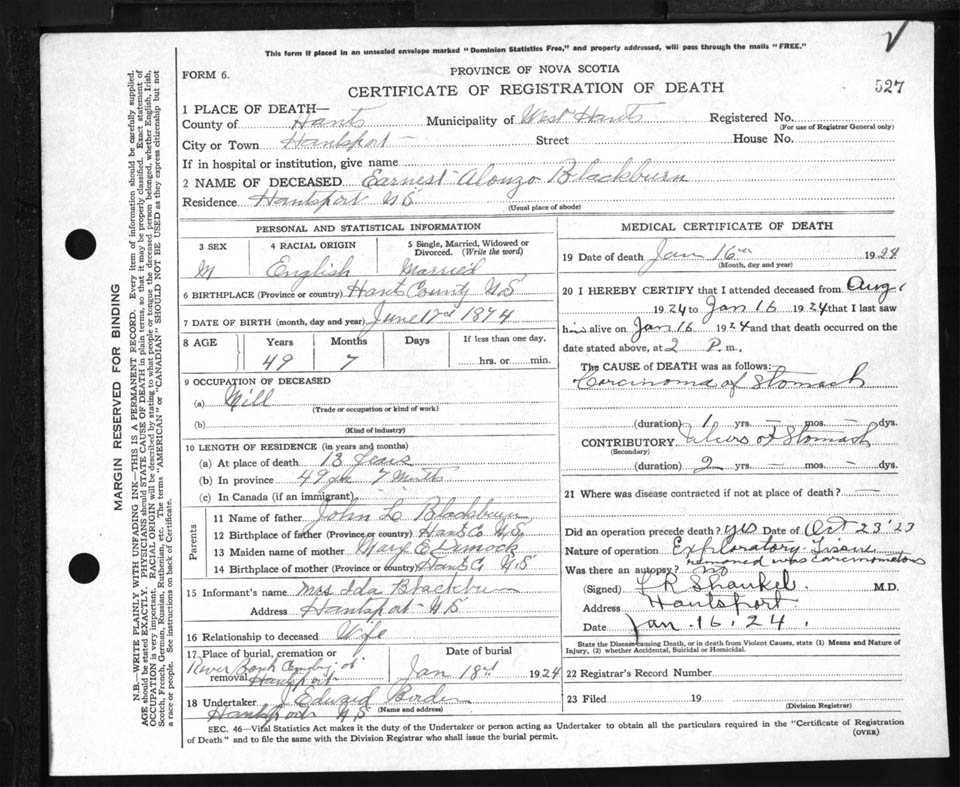 This form if placed in an unsealed envelope marked "Dominion Statistics Free," and properly addressed, will pass through the mails "FREE."
FORM 6.
PROVINCE OF NOVA SCOTIA
CERTIFICATE OF REGISTRATION OF DEATH
527
1 PLACE OF DEATH—
County of Hants Municipality of West Hants Registered No.
(For use of Registrar General only)
City or Town Hantsport Street House No.
If in hospital or institution, give name
2 NAME OF DECEASED Earnest Alonzo Blackburn
Residence Hantsport N S
(Usual place of abode)
PERSONAL AND STATISTICAL INFORMATION
3 SEX 4 RACIAL ORIGIN 5 Single, Married, Widowed or Divorced. (Write the word)
M English Married
6 BIRTHPLACE (Province or country) Hants County N S
7 DATE OF BIRTH (month, day and year) June 1874
8 AGE Years Months Days If less than one day,
49 7 hrs. or min.
9 OCCUPATION OF DECEASED
(a) Mill
(Trade or occupation or kind of work)
(b)
(Kind of industry)
10 LENGTH OF RESIDENCE (in years and months)
(a) At place of death 13 Years
(b) In province 49 7 Months
(c) In Canada (if an immigrant)
Parents
11 Name of father John L Blackburn
12 Birthplace of father (Province or country) Hants Co N S
13 Maiden name of mother Mary E Dimock
14 Birthplace of mother (Province or country) Hants C N S
15 Informant's name Mrs Ida Blackburn
Address Hantsport N S
16 Relationship to deceased Wife
17 Place of burial, cremation or removal Date of burial
River Bank Hantsport Jan 18 1924
18 Undertaker Edward
(Name and address)
Hantsport N S
MEDICAL CERTIFICATE OF DEATH
19 Date of death Jan 16 1924
(Month, day and year)
20 I HEREBY CERTIFY that I attended deceased from Aug
1924 to Jan 16 1924 that I last saw
him alive on Jan 16 1924 and that death occurred on
the date stated above, at 2 P. m.
The CAUSE of DEATH was as follows:
Carcinoma of Stomach
(duration) 1 yrs. — mos. — dys.
CONTRIBUTORY Ulcers of Stomach
(Secondary)
(duration) 2 yrs. — mos. — dys.
21 Where was disease contracted if not at place of death? —
Did an operation precede death? yes Date of Oct 23 '23
Nature of operation Exploratory
removed was carcinomatous
Was there an autopsy? no
(Signed) M.D.
Address Hantsport
Date Jan. 16, 24.
State the Disease causing Death, or in death from Violent Causes, state (1) Means and Nature of
Injury, (2) whether Accidental, Suicidal or Homicidal.
22 Registrar's Record Number
23 Filed 19
(Division Registrar)
SEC. 46—Vital Statistics Act makes it the duty of the Undertaker or person acting as Undertaker to obtain all the particulars required in the "Certificate of Registration
of Death" and to file the same with the Division Registrar who shall issue the burial permit.
(OVER)
MARGIN RESERVED FOR BINDING
N.B.—WRITE PLAINLY WITH UNFADING INK—THIS IS A PERMANENT RECORD. Every item of information should be carefully supplied.
AGE should be stated EXACTLY. PHYSICIANS should STATE CAUSE OF DEATH in plain terms, so that it may be properly classified. Exact statement of
OCCUPATION is very important. RACIAL ORIGIN will be described by stating to what people or tongue the deceased person belonged, whether English, Irish,
Scotch, French, German, Russian, Ruthenian, etc. The terms "AMERICAN" or "CANADIAN" SHOULD NOT BE USED as they express citizenship but not
a race or people. See instructions on back of Certificate.